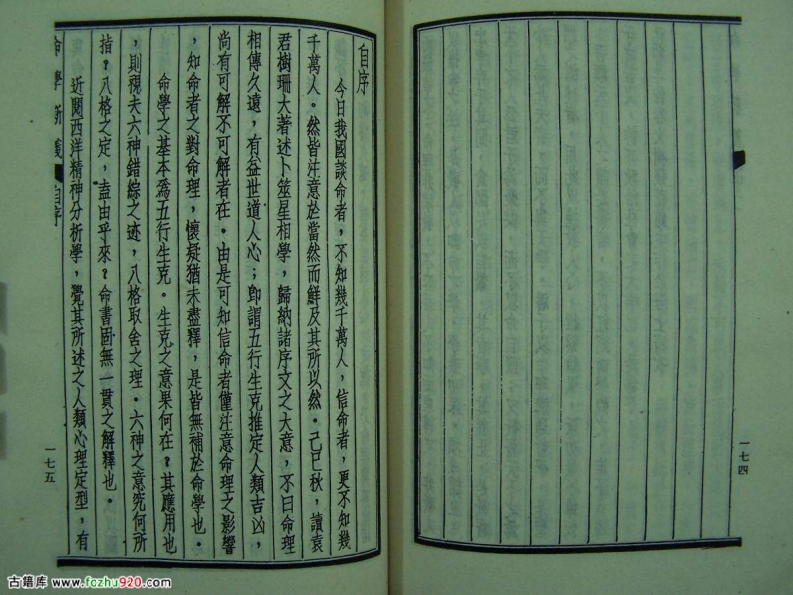 一七四
自序
今日我國談命者，不知幾千萬人，信命者，更不知幾
千萬人。然皆注意於當然而鮮及其所以然。己巳秋，讀袁
君樹珊大著述卜筮星相學，歸納諸序文之大意，不曰命理
相傳久遠，有益世道人心；即謂五行生克推定人類吉凶，
尚有可解不可解者在。由是可知信命者僅注意命理之影響
，知命者之對命理，懷疑猶未盡釋，是皆無補於命學也。
命學之基本為五行生克。生克之意果何在？其應用也
，則視夫六神錯綜之迹，八格取舍之理。六神之意究何所
指？八格之定，盍由乎來？命書固無一貫之解釋也。
近閱西洋精神分析學，覺其所述之人類心理定型，有
命學新義 自序
一七五
古籍库 www.fozhu920.com